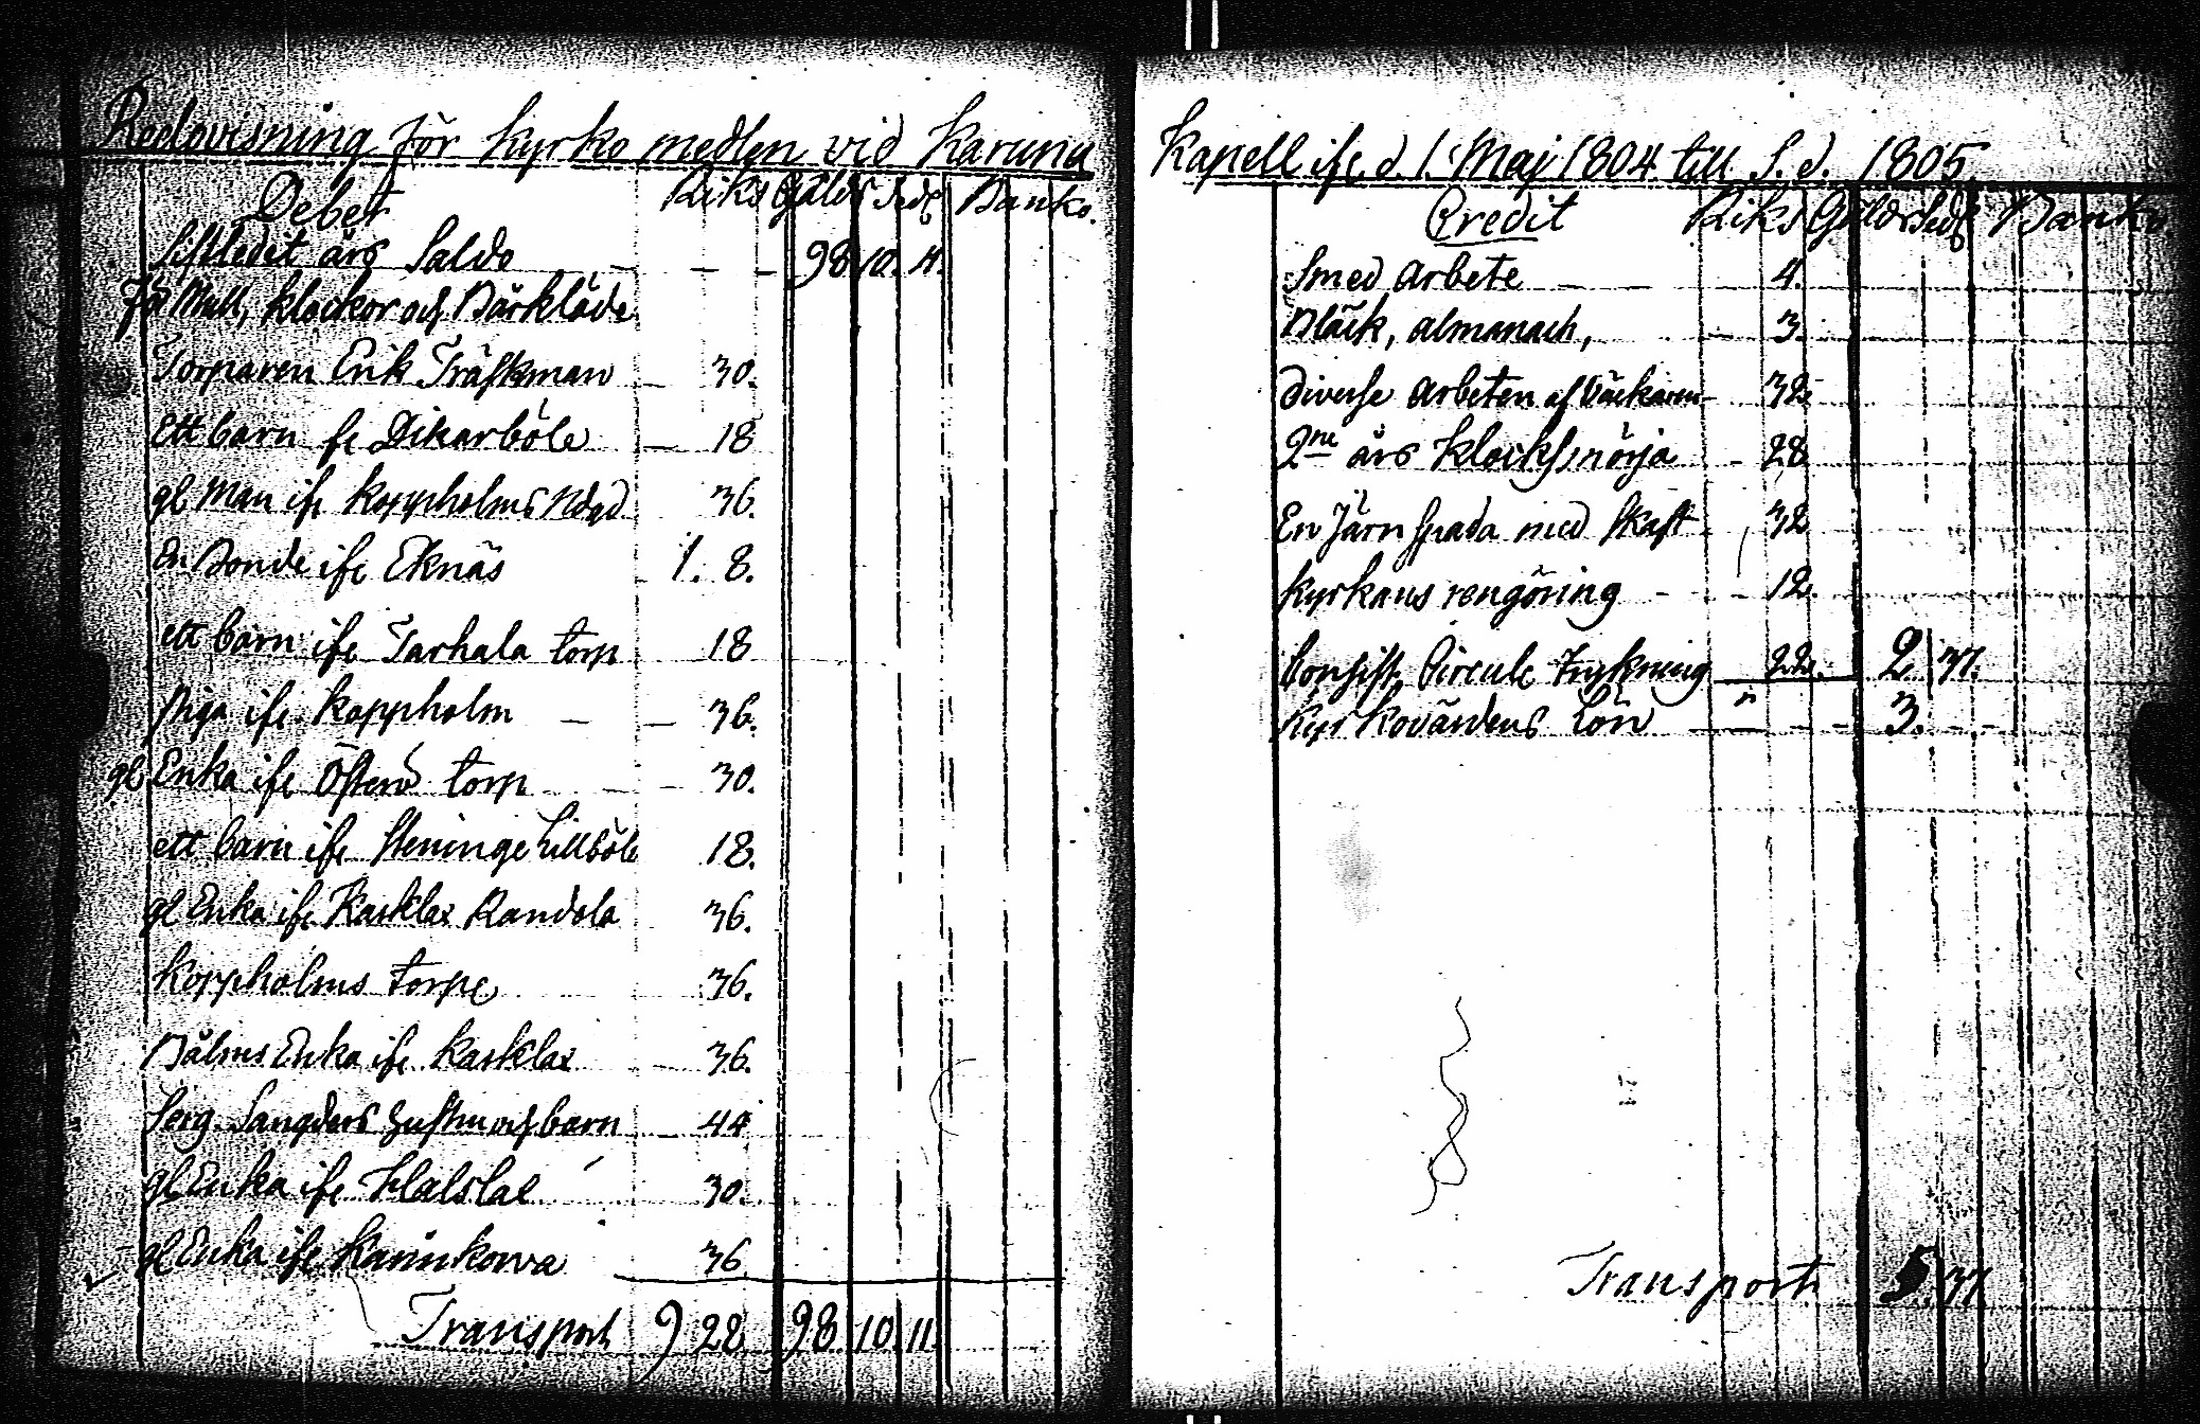 Redovisning för Kyrko medlen vid Karuna
Debet Riks Gälds Sedl Banko.
Sistledit års Saldo - - - 98 10. 11.
För Mull, klockor och Bårkläde
Torparen Erik Träskman - 30.
Ett barn fr Dikarböle - 18
gl Man ifr Koppholms
36.
En Bonde ifr Eknäs - 1. 8.
ett barn ifr Tarhala torp 18
Piga ifr Koppholm - - 36.
gl Enka ifr Österö torp - - 30.
ett barn ifr Steninge Lillböle 18.
gl Enka ifr Karklax Randala 36.
Koppholms torpe 36.
Bålms Enka ifr Karklax - 36.
Serg. Sangders Hustru och barn - 44
gl Enka ifr 30.
gl Enka ifr 36
Transport 9 28 98 10 11
Kapell ifr. d. 1. Maj 1804 till S. d. 1805
Credit Riks Gälds Sedl Banko.
Smed arbete - - 4.
Bläck, almanach, - 3.
Diverse arbeten af Väckaren - 32.
2ne års klocksmörja - 28
En Järn spada med skaft 32
Kyrkans rengöring - - 12.
Consist. Circule tryckning 22. 2. 37.
Kyrkovärdens Lön - - - 3. - -
Transport 5. 37